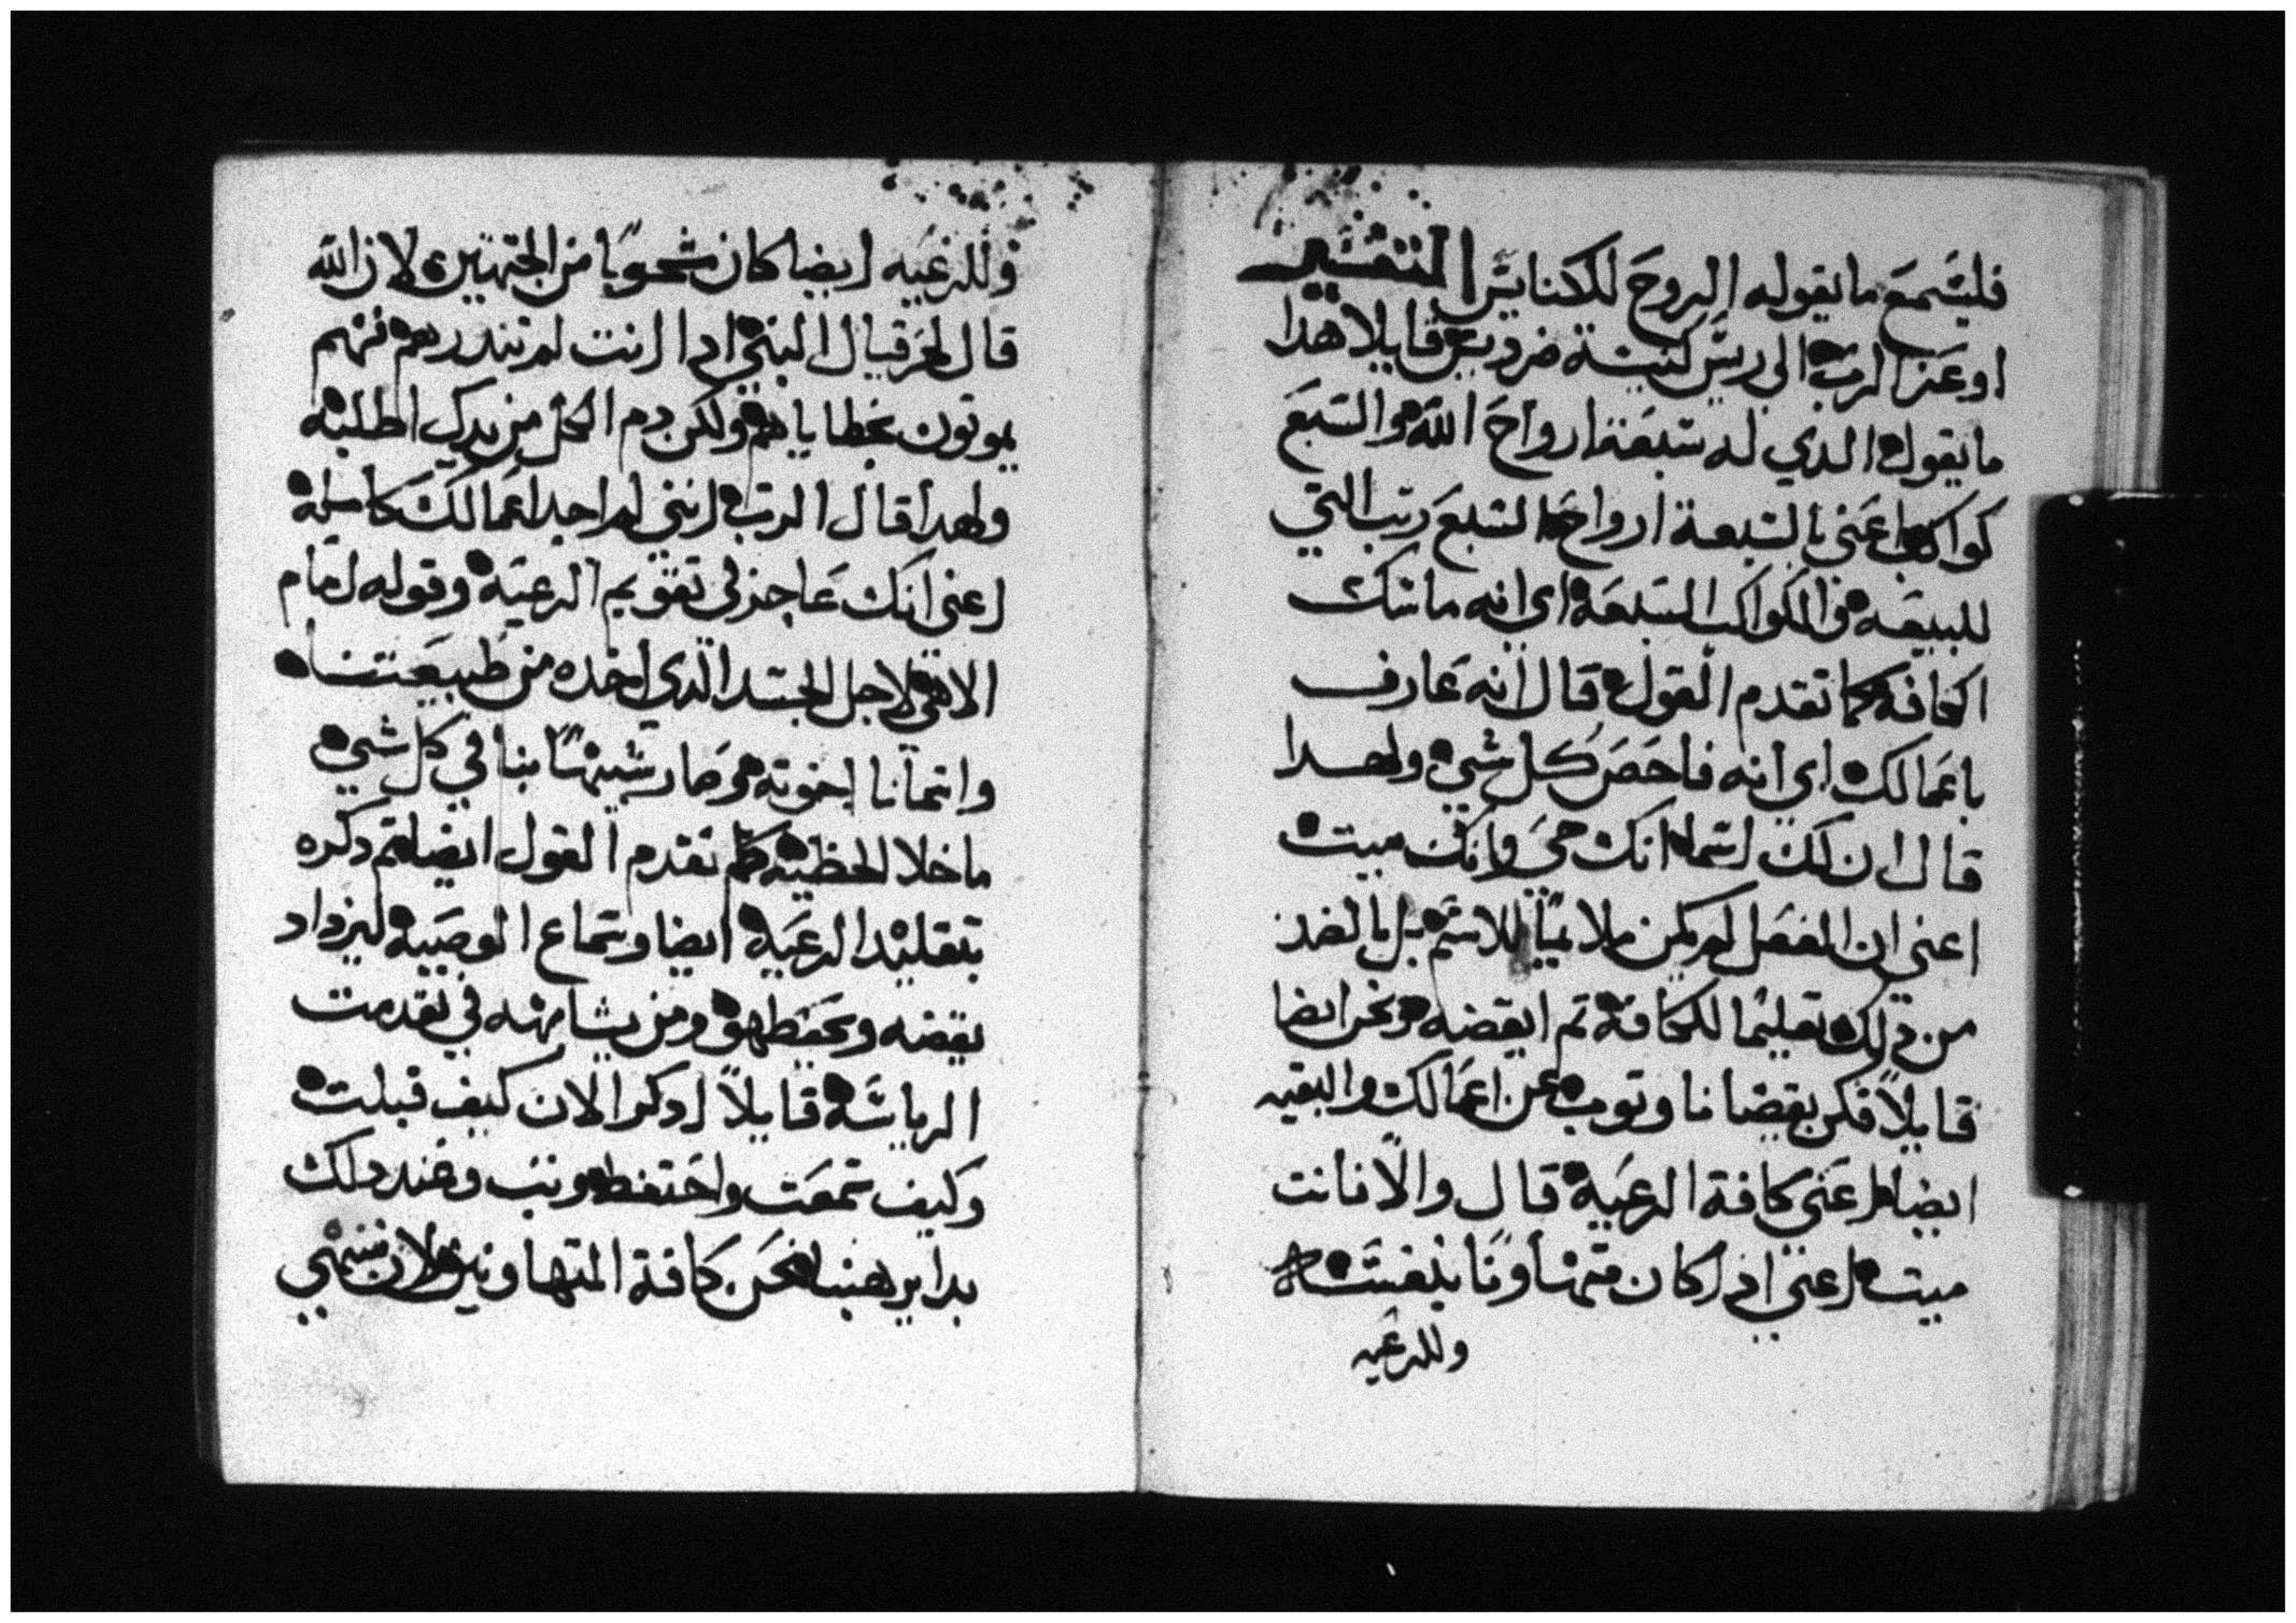 فليسمع ما يقوله الروح للكنايس التفسير
اوعز الرب الى ريس كنيسة سرديس قايلا هدا
ما يقول الدي له سبعة ارواح الله والسبع
كواكب اعنى بالسبعة ارواح السبع رتب التي
للبيعه والكواكب السبعة اى انه ماسك
الكافه كما تقدم القول قال انه عارف
باعمالك اي انه فاحص كل شي ولهدا
قال ان لك اسما انك حى وانك ميت
اعني ان الفعل لم يكن ملايما للاسم بل بالضد
من دلك تعليما للكافة تم ايقضه ونحن ايضا
قايلا فكن يقضانا وتوب عن اعمالك والبقيه
ايضا اعنى كافة الرعية قال والا فانت
ميت اعني ادا كان متهاونا بنفسه
وللرعيه
وللرعيه ايضا كان مشجوبا من الجهتين لان الله
قال لحزقيال النبي ادا انت لم تندرهم فهم
يموتون بخطاياهم ولكن دم الكل من يدك اطلبه
ولهدا قال الرب اننى لم اجد اعمالك كاملة
اعني انك عاجز في تقويم الرعية وقوله امام
الاهى لاجل الجسد الدى اخده من طبيعتنا
واتمانا اخوته وصار شبيها بنا في كل شي
ما خلا الخطية كما تقدم القول ايضا تم دكره
بتقليد الرعية ايضا وسماع الوصية ليزداد
يقضه وتحفظ هو ومن يشابهه في تقدمت
الرياسة قايلا ادكر الان كيف قبلت
وكيف سمعت واحتفط وتب وعند دلك
بدا يرهبنا نحن كافة المتهاونين لان